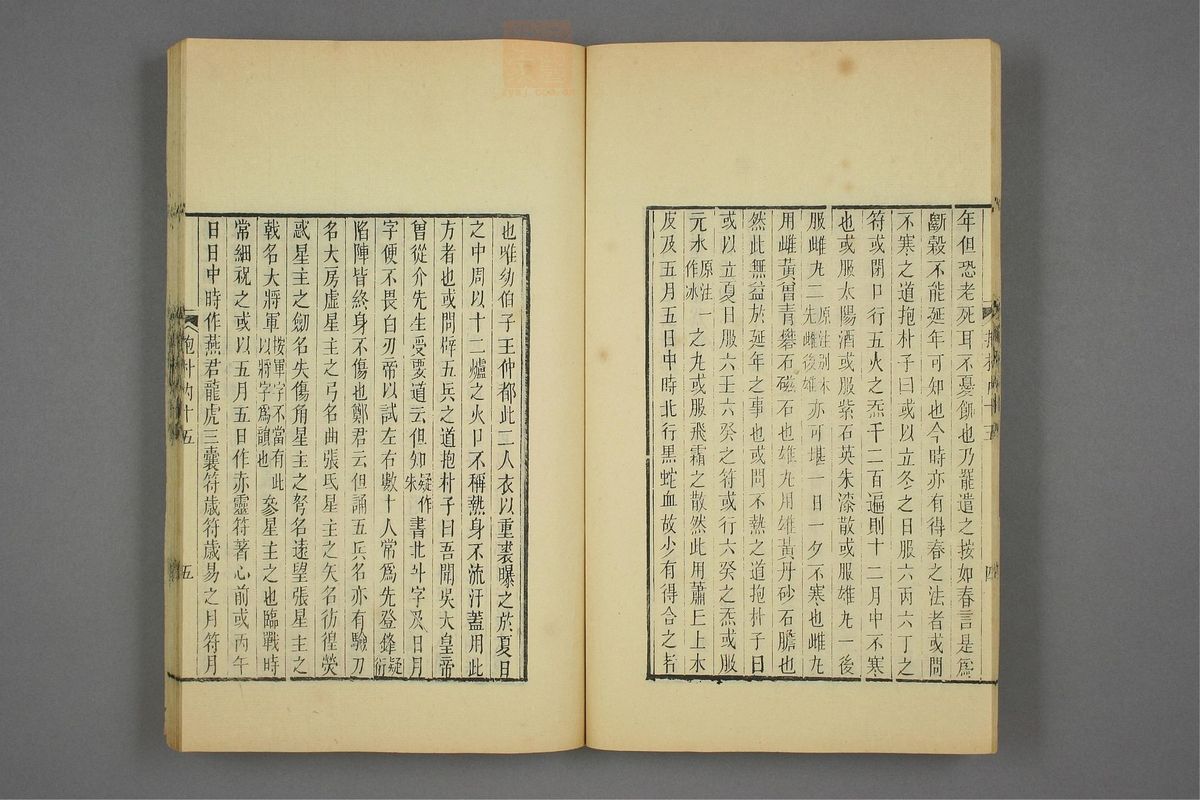 年但恐老死耳不憂飢也乃罷遣之按如春言是爲
斷穀不能延年可知也今時亦有得春之法者或問
不寒之道抱朴子曰或以立冬之日服六丙六丁之
符或閉口行五火之炁千二百遍則十二月中不寒
也或服太陽酒或服紫石英朱漆散或服雄丸一後
服雌丸二原注別本先雌後雄亦可堪一日一夕不寒也雌丸
用雌黃曾青礬石磁石也雄丸用雄黃丹砂石膽也
然此無益於延年之事也或問不熱之道抱朴子曰
或以立夏日服六壬六癸之符或行六癸之炁或服
元冰原注一作冰之丸或服飛霜之散然此用蕭丘上木
皮及五月五日中時北行黑蛇血故少有得合之者
抱朴內十五
四
也唯幼伯子王仲都此二人衣以重裘曝之於夏日
之中周以十二爐之火口不稱熱身不流汗蓋用此
方者也或問辟五兵之道抱朴子曰吾聞吳大皇帝
曾從介先生受要道云但知疑作朱書北斗字及日月
字便不畏白刃帝以試左右數十人常爲先登鋒疑衍
陷陣皆終身不傷也鄭君云但誦五兵名亦有驗刀
名大房虛星主之弓名曲張氐星主之矢名彷徨熒
惑星主之劒名失傷角星主之弩名遠望張星主之
戟名大將軍按軍字不當有此以將字爲韻也參星主之也臨戰時
常細祝之或以五月五日作赤靈符著心前或丙午
日日中時作燕君龍虎三囊符歲符歲易之月符月
抱朴內十五
五